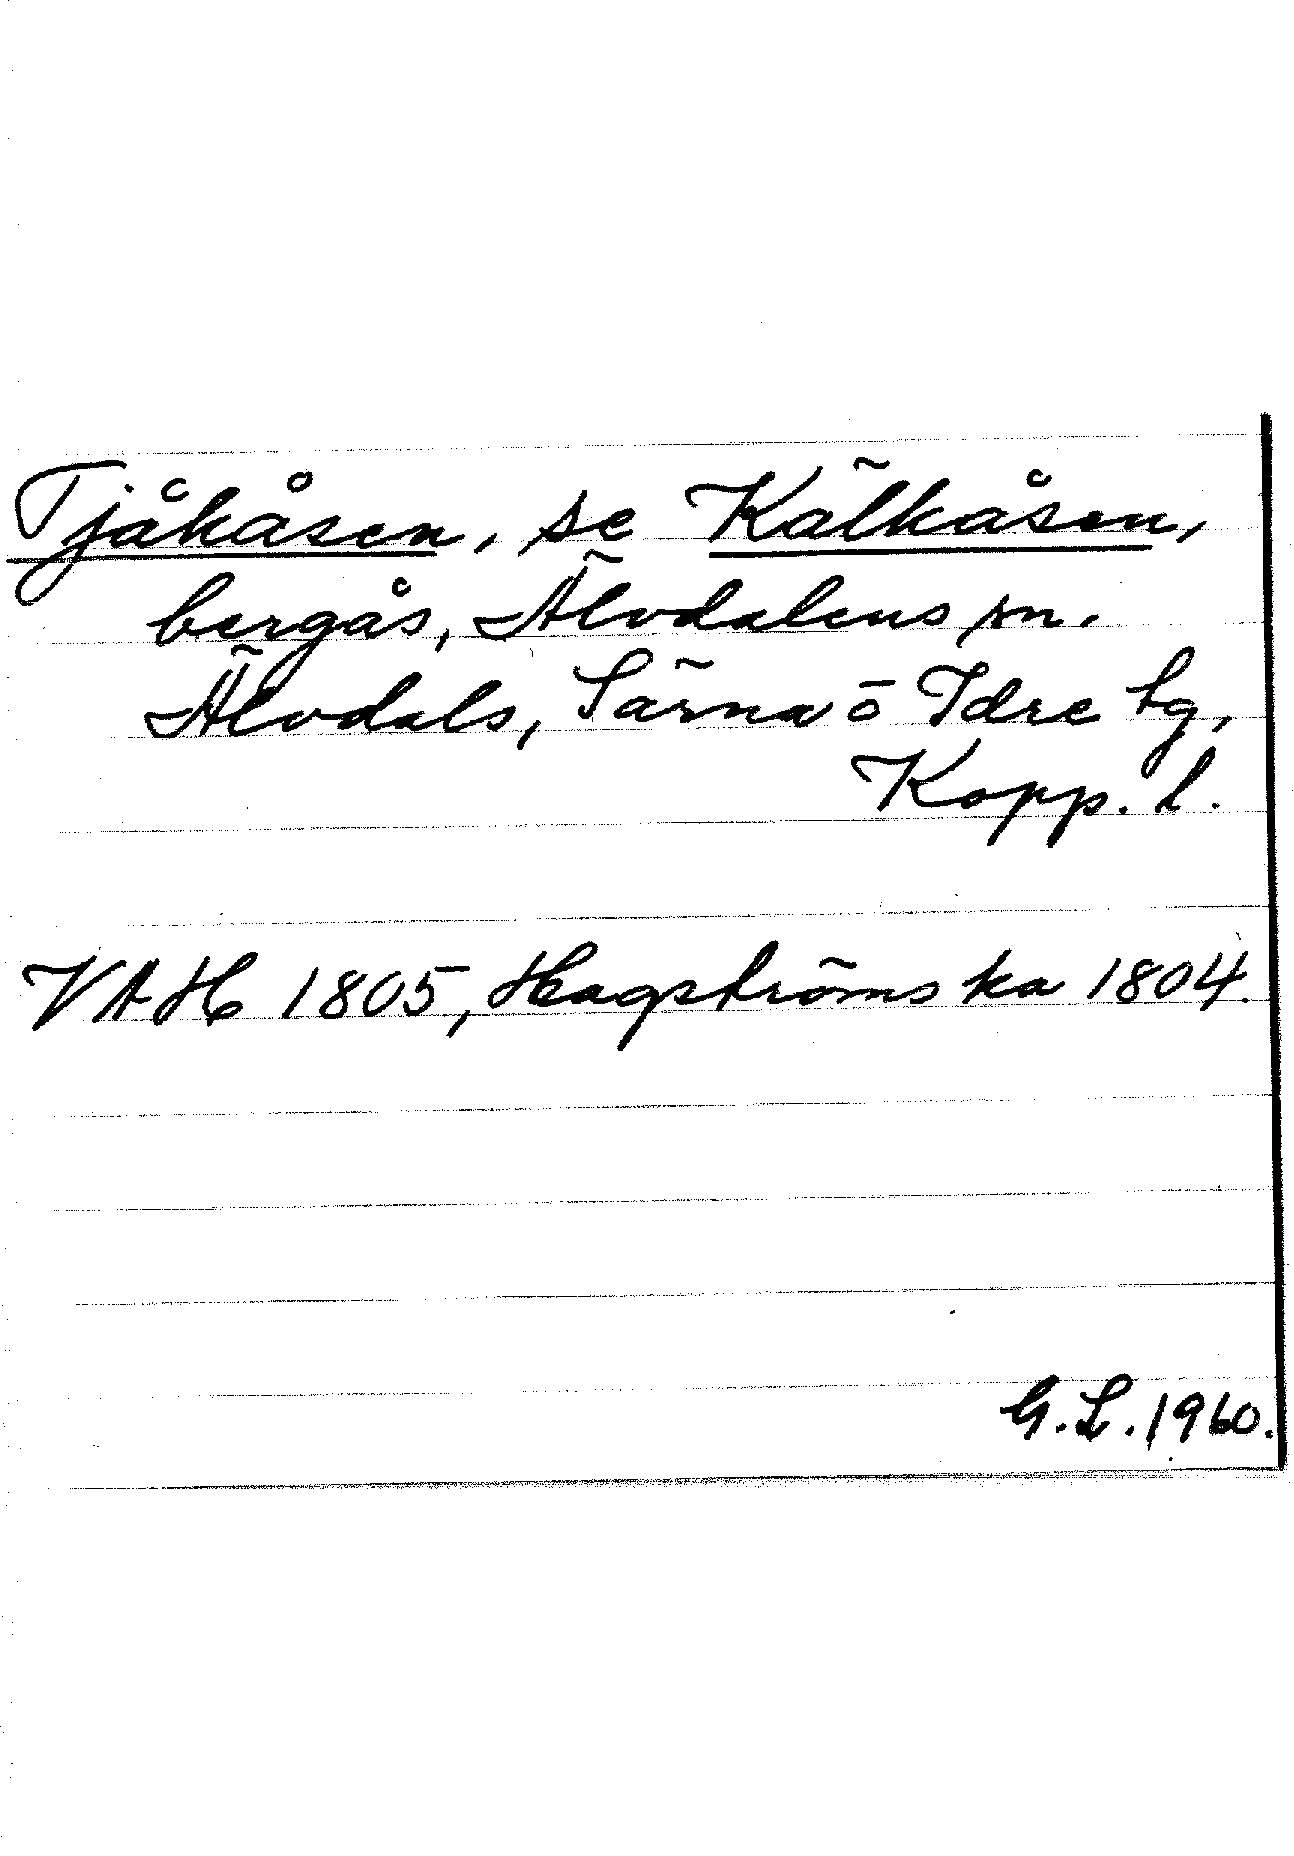 Tjåkåsen, se Kälkåsen,
bergås, Älvdalens sn.
Älvdals, Särna o Idre tg,
Kopp. l.
VAH 1805, Hagströms ka 1804.
G.L. 1960.